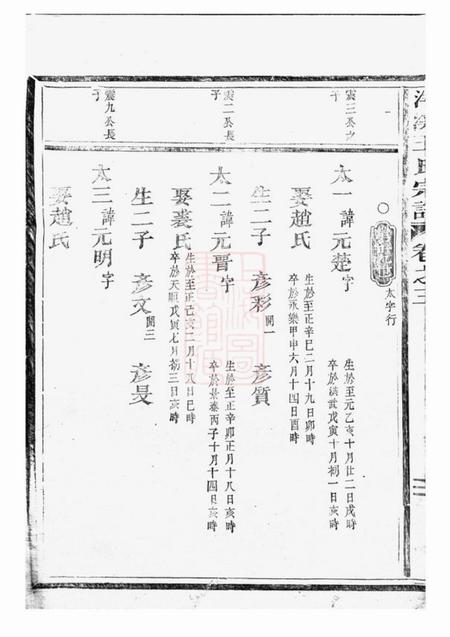 王氏宗譜 卷之三
太字行
震三公之子
太一 諱元楚 字
生於至元乙亥十月廿二日戌時
卒於洪武戊寅十月初一日亥時
娶趙氏
生於至正辛巳二月十九日卯時
卒於永樂甲申六月十四日酉時
生二子 彥彩 閱一 彥質
震二公長子
太二 諱元晋 字
生於至正辛卯正月十八日亥時
卒於景泰丙子十月十四日亥時
娶裘氏
生於至正己亥二月十八日巳時
卒於天順戊寅七月初三日亥時
生二子 彥文 閱三 彥旻
震九公長子
太三 諱元明 字
娶趙氏